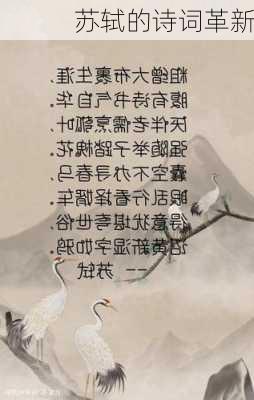 苏轼的诗词革新
粗缯大布裹生涯,
腹有诗书气自华。
厌伴老儒烹瓠叶,
强随举子踏槐花。
囊空不办寻春马,
眼乱行看择婿车。
得意犹堪夸世俗,
诏黄新湿字如鸦。
-- 苏轼